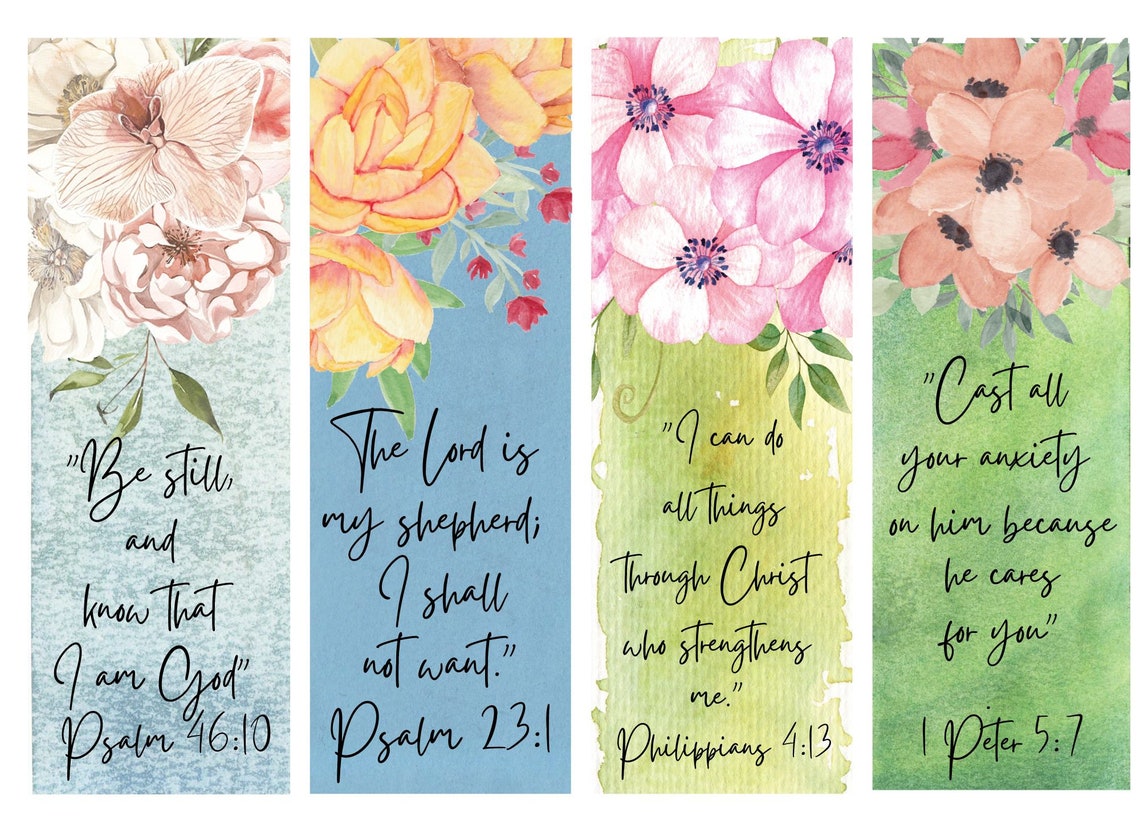 "Be still,
and
know that
I am God"
Psalm 46:10
The Lord is
my shepherd;
I shall
not want."
Psalm 23:1
"I can do
all things
through Christ
who strengthens
me."
Philippians 4:13
"Cast all
your anxiety
on him because
he cares
for you"
1 Peter 5:7